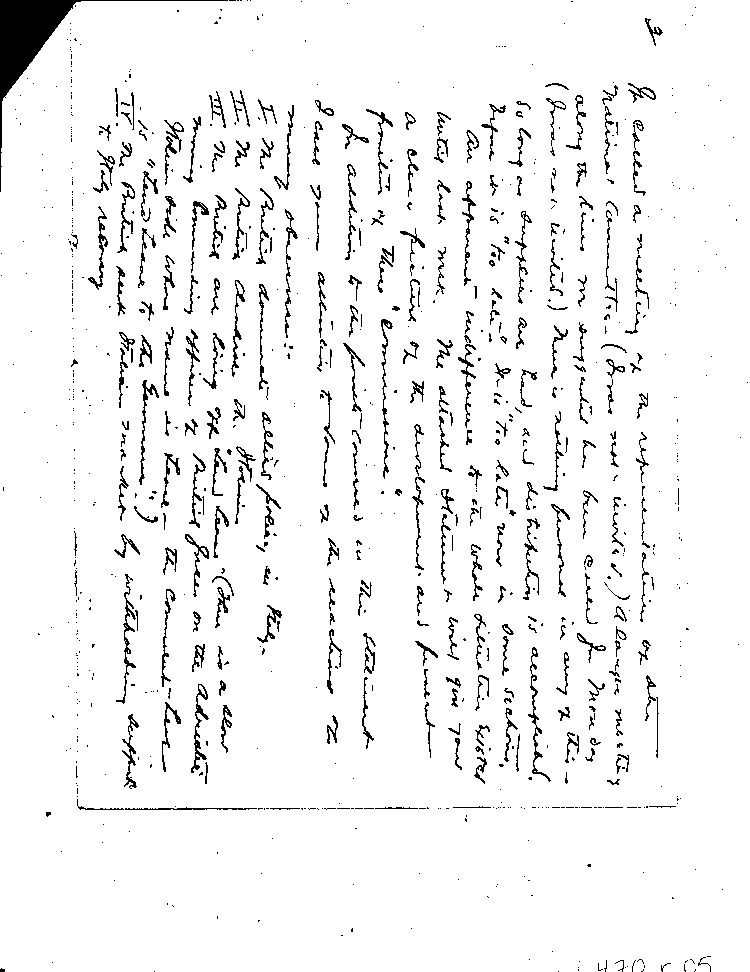 2
He called a meeting of the representatives of the
National Committee (I was not invited.) A larger meeting
along the lines you suggested has been called for Monday
(I was not invited.) There is nothing personal in any of this—
So long as supplies are had, and distribution is accomplished,
before it is "too late". It is "too late" now in some sections.
An apparent indifference to the whole situation existed
until last week. The attached statement will give you
a clear picture of the development and present
position of these "Commissions".
In addition to the points covered in this statement
I call your attention to some of the reactions of
many observers:-
I. The British dominate allied policy in Italy.
II. The British the Italians
III. The British are living off "Lend Lease". (There is a
Commanding officer of British forces on the Adriatic
side whose name is Leese — the comment here
is "Lend Leese to the Germans".)
IV. The British seek Italian market by withholding support
to Italy recovery
470 r 05